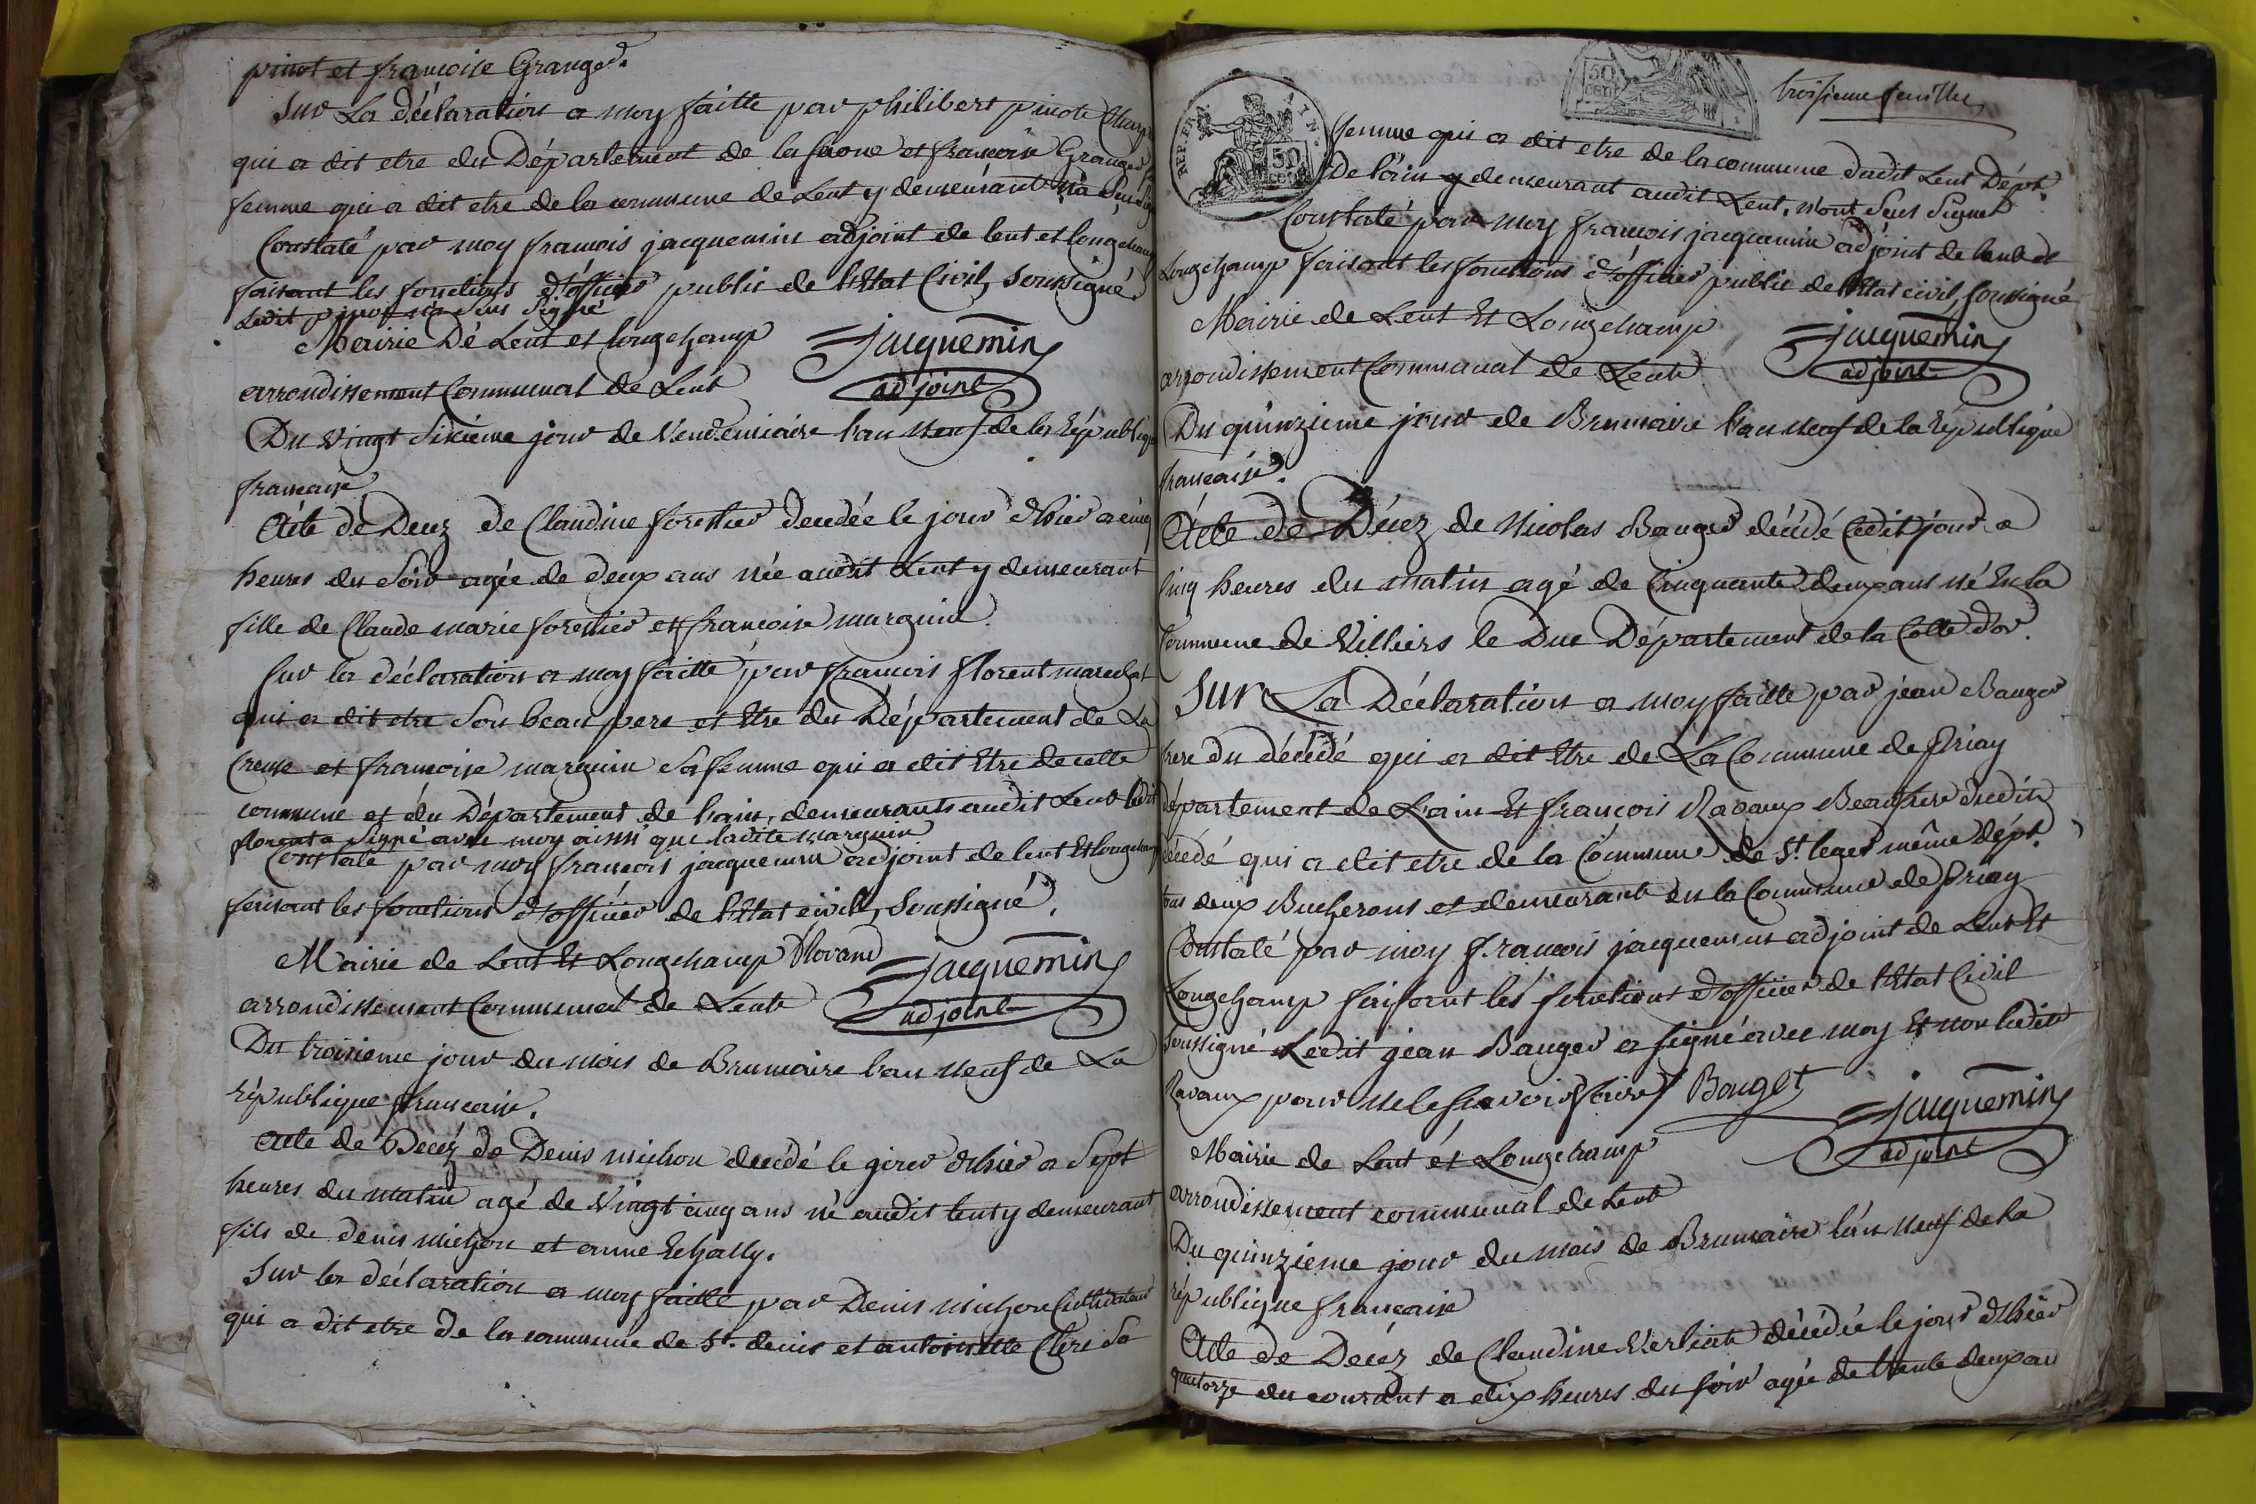 pinot et francoise Granger.
Sur La déclaration a moy faitte par philibert pinot
qui a dit etre du Département de la saone et francoise Granger
femme qui a dit etre de la commune de Lent y demeurant
Constaté par moy francois jacquemin adjoint de lent et longchamp
faisant les fonctions d'officier public de l'Etat Civil, soussigné
Ledit pinot n'a seus signé
Mairie Dé Lent et longchamp
arrondissement Communal de Lent
jacquemin
adjoint
Du vingt sixieme jour de Vendemiaire l'an neuf de la République
francaise
Acte de Decez de Claudine forestier decedée le jour d'hier a cinq
heures du Soir agée de deux ans née audit Lent y demeurant
fille de Claude marie forestier et francoise marguin.
Sur la déclaration a moy faitte par francois florent marechat
qui a dit etre Son beau pere et Etre du Département de La
Creuse et francoise marguin Sa femme qui a dit Etre de cette
commune et du Département de l'ain, demeurants audit Lent ledit
florent a Signé avec moy ainsi que ladite marguin
Constaté par moy francois jacquemin adjoint de lent Et longchamp
faisant les fonctions d'officier de l'Etat civil, Soussigné.
Mairie de Lent Et Longchamp
jacquemin
arrondissement Communal de Lent
adjoint
Du troisieme jour du mois de Brumaire l'an neuf de La
république francaise.
Acte de Decéz de Denis michon decedé le jour d'hier a Sept
heures du matin agé de Vingt cinq ans né audit lent y demeurant
fils de denis michon et anne Echally.
Sur la déclaration a moy faitte par Denis michon Cultivateur
qui a dit etre de la commune de St. denis et antoinette Clerc Sa
troisieme feuille
REP. FRA.
50 cent
50 cent
femme qui a dit etre de la commune dudit Lent Dépt.
De l'ain y demeurant audit Lent, n'ont Seus Signer
Constaté par moy francois jacquemin adjoint de lent et
Longchamp faisant les fonctions d'officier public de l'Etat civil, soussigné
Mairie de Lent Et Longchamp
jacquemin
arrondissement Communal de Lent
adjoint
Du quinzieme jour de Brumaire l'an neuf de la République
francaise.
Acte de Décez de Nicolas Bauger décédé Cedit jour a
Cinq heures du matin agé de Cinquante deux ans né En la
Commune de Villiers le Duc Département de la Cotte d'or.
Sur La Déclaration a moy faitte par jean Bauger
frere du décédé qui a dit Etre de La Commune de Priay
département de L'ain Et francois Ravaux Beaufrere dudit
décédé qui a dit etre de la Commune de St. leger même dépt.
tous deux Bucherons et demeurant en la Commune de Priay
Constaté par moy francois jacquemin adjoint de Lent Et
Longchamp faisant les fonctions d'officier de l'Etat Civil
soussigné Ledit jean Bauger a signé avec moy Et non ledit
Ravaux pour ne le scavoir faire
Bauget
jacquemin
adjoint
Mairie de Lent et Longchamp
arrondissement communal de Lent
Du quinzieme jour du mois de Brumaire l'an neuf de La
république francaise
Acte de Decéz de Claudine décédée le jour d'hier
quatorze du courant a dix heures du soir agée de trente deux an